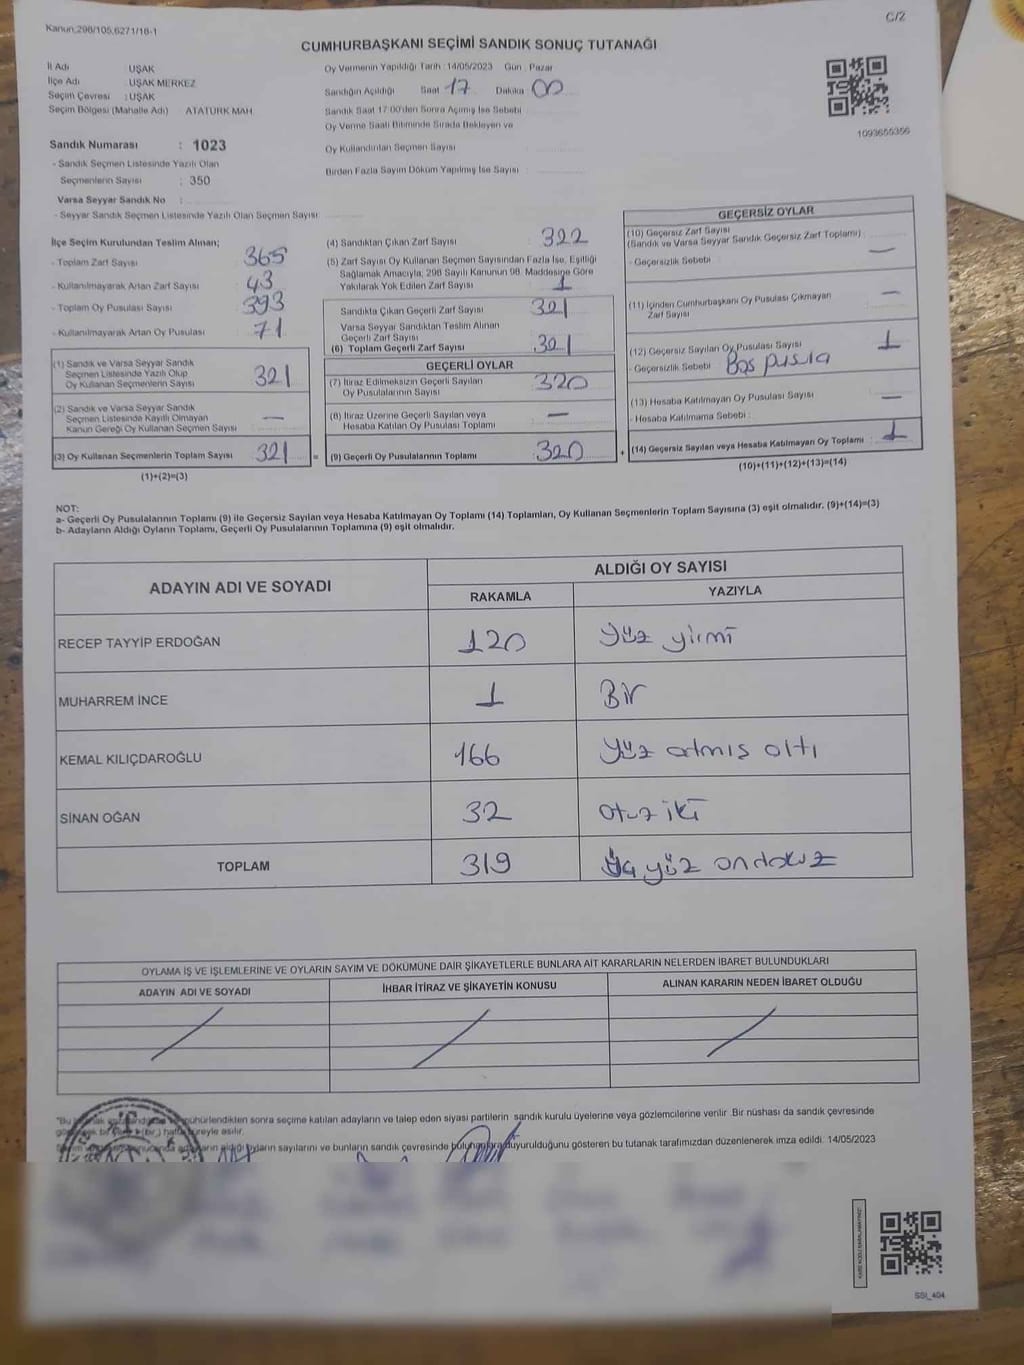 Kanun;298/105,6271/18-1
C/2
CUMHURBAŞKANI SEÇİMİ SANDIK SONUÇ TUTANAĞI
İl Adı UŞAK
İlçe Adı : UŞAK MERKEZ
Seçim Çevresi : UŞAK
Seçim Bölgesi (Mahalle Adı) ATATÜRK MAH
Oy Vermenin Yapıldığı Tarih : 14/05/2023 Gün : Pazar
Sandığın Açıldığı Saat 17 Dakika 00
Sandık Saat 17:00'den Sonra Açılmış İse Sebebi
Oy Verme Saati Bitiminde Sırada Bekleyen ve
Oy Kullandırılan Seçmen Sayısı
Birden Fazla Sayım Döküm Yapılmış İse Sayısı
1093655356
Sandık Numarası : 1023
- Sandık Seçmen Listesinde Yazılı Olan
Seçmenlerin Sayısı : 350
Varsa Seyyar Sandık No :
- Seyyar Sandık Seçmen Listesinde Yazılı Olan Seçmen Sayısı
İlçe Seçim Kurulundan Teslim Alınan;
- Toplam Zarf Sayısı 365
- Kullanılmayarak Artan Zarf Sayısı 43
- Toplam Oy Pusulası Sayısı 393
- Kullanılmayarak Artan Oy Pusulası 71
(1) Sandık ve Varsa Seyyar Sandık
Seçmen Listesinde Yazılı Olup
Oy Kullanan Seçmenlerin Sayısı 321
(2) Sandık ve Varsa Seyyar Sandık
Seçmen Listesinde Kayıtlı Olmayan
Kanun Gereği Oy Kullanan Seçmen Sayısı : —
(3) Oy Kullanan Seçmenlerin Toplam Sayısı 321
(1)+(2)=(3)
(4) Sandıktan Çıkan Zarf Sayısı 322
(5) Zarf Sayısı Oy Kullanan Seçmen Sayısından Fazla İse, Eşitliği
Sağlamak Amacıyla, 298 Sayılı Kanunun 98. Maddesine Göre
Yakılarak Yok Edilen Zarf Sayısı 1
Sandıkta Çıkan Geçerli Zarf Sayısı 321
Varsa Seyyar Sandıktan Teslim Alınan
Geçerli Zarf Sayısı
(6) Toplam Geçerli Zarf Sayısı 321
GEÇERLİ OYLAR
(7) İtiraz Edilmeksizin Geçerli Sayılan
Oy Pusulalarının Sayısı 320
(8) İtiraz Üzerine Geçerli Sayılan veya
Hesaba Katılan Oy Pusulası Toplamı —
= (9) Geçerli Oy Pusulalarının Toplamı 320
GEÇERSİZ OYLAR
(10) Geçersiz Zarf Sayısı
(Sandık ve Varsa Seyyar Sandık Geçersiz Zarf Toplamı) :
- Geçersizlik Sebebi : —
(11) İçinden Cumhurbaşkanı Oy Pusulası Çıkmayan
Zarf Sayısı —
(12) Geçersiz Sayılan Oy Pusulası Sayısı 1
- Geçersizlik Sebebi Boş pusula
(13) Hesaba Katılmayan Oy Pusulası Sayısı —
- Hesaba Katılmama Sebebi :
+ (14) Geçersiz Sayılan veya Hesaba Katılmayan Oy Toplamı 1
(10)+(11)+(12)+(13)=(14)
NOT:
a- Geçerli Oy Pusulalarının Toplamı (9) ile Geçersiz Sayılan veya Hesaba Katılmayan Oy Toplamı (14) Toplamları, Oy Kullanan Seçmenlerin Toplam Sayısına (3) eşit olmalıdır. (9)+(14)=(3)
b- Adayların Aldığı Oyların Toplamı, Geçerli Oy Pusulalarının Toplamına (9) eşit olmalıdır.
ADAYIN ADI VE SOYADI ALDIĞI OY SAYISI
RAKAMLA YAZIYLA
RECEP TAYYİP ERDOĞAN 120 Yüz yirmi
MUHARREM İNCE 1 Bir
KEMAL KILIÇDAROĞLU 166 Yüz atmış altı
SİNAN OĞAN 32 otuz iki
TOPLAM 319 Üç yüz ondokuz
OYLAMA İŞ VE İŞLEMLERİNE VE OYLARIN SAYIM VE DÖKÜMÜNE DAİR ŞİKAYETLERLE BUNLARA AİT KARARLARIN NELERDEN İBARET BULUNDUKLARI
ADAYIN ADI VE SOYADI İHBAR İTİRAZ VE ŞİKAYETİN KONUSU ALINAN KARARIN NEDEN İBARET OLDUĞU
"Bu mühürlendikten sonra seçime katılan adayların ve talep eden siyasi partilerin sandık kurulu üyelerine veya gözlemcilerine verilir .Bir nüshası da sandık çevresinde
bir (bir ) hafta süreyle asılır.
aldığı oyların sayılarını ve bunların sandık çevresinde duyurulduğunu gösteren bu tutanak tarafımızdan düzenlenerek imza edildi. 14/05/2023
KARE KODU KARALAMAYINIZ!
SSI_404